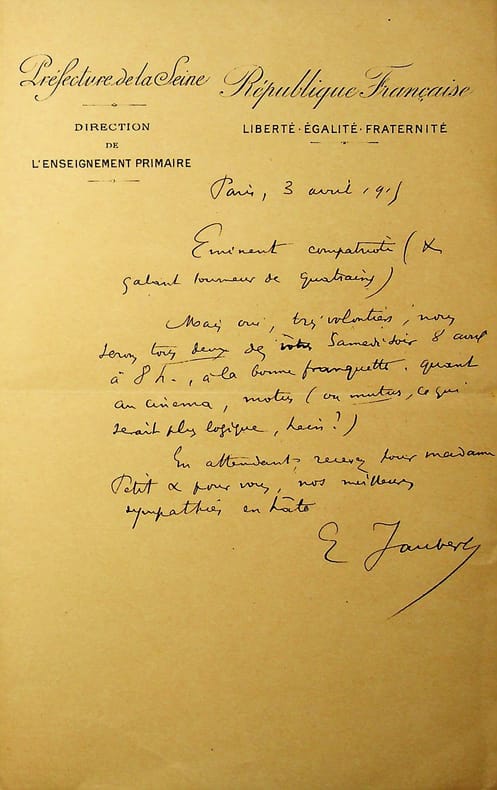 Préfecture de la Seine
République Française
DIRECTION
DE
L'ENSEIGNEMENT PRIMAIRE
LIBERTÉ · ÉGALITÉ · FRATERNITÉ
Paris, 3 avril
Eminent compatriote (&
galant tourneur de quatrains)
Mais oui, très volontiers, nous
serons tous deux des vôtres Samedi soir 8 avril
à 8 h., à la bonne franquette. quant
au cinema, motus (ou mutus, ce qui
serait plus logique, hein?)
En attendant, recevez pour madame
Petit & pour vous, nos meilleures
sympathies en hâte
E Jaubert